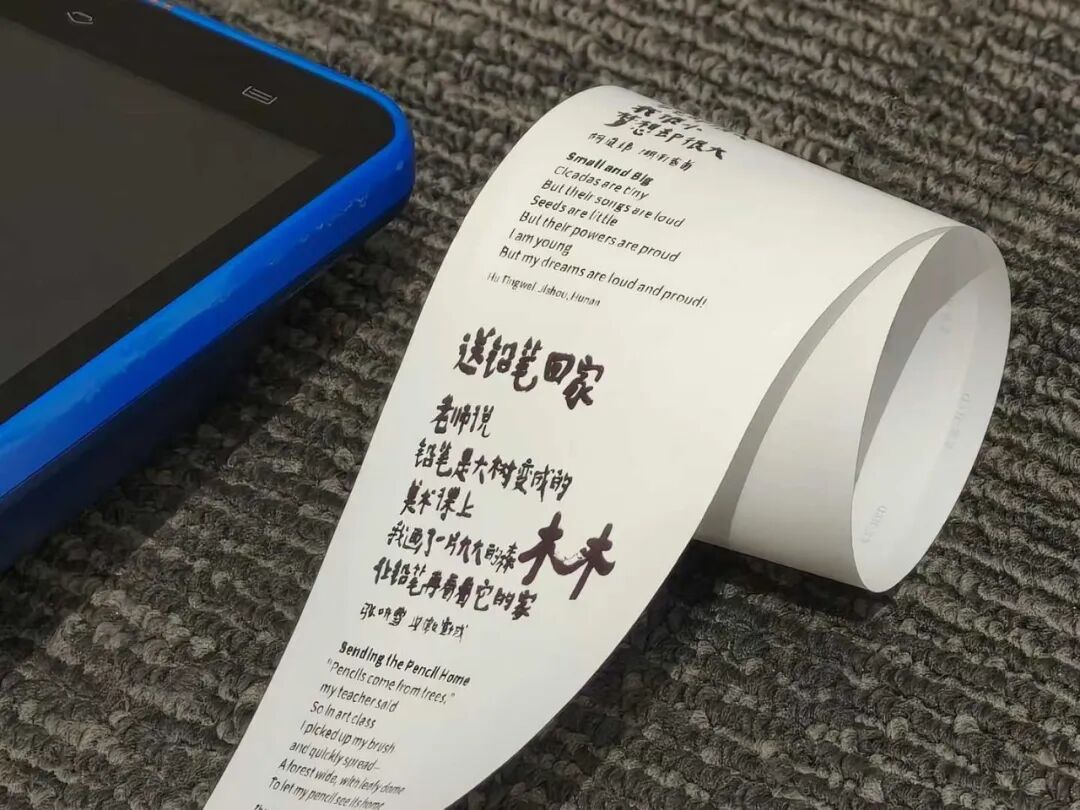 我很小
梦想却很大
Small and Big
Cicadas are tiny
But their songs are loud
Seeds are little
But their powers are proud
I am young
But my dreams are loud and proud!
Hu Tingwei, Jishou, Hunan
送铅笔回家
老师说
铅笔是大树变成的
美术课上
我画了一片大大的森林
让铅笔再看看它的家
Sending the Pencil Home
"Pencils come from trees,"
my teacher said
So in art class
I picked up my brush
and quickly spread—
A forest wide, with leafy dome
To let my pencil see its home